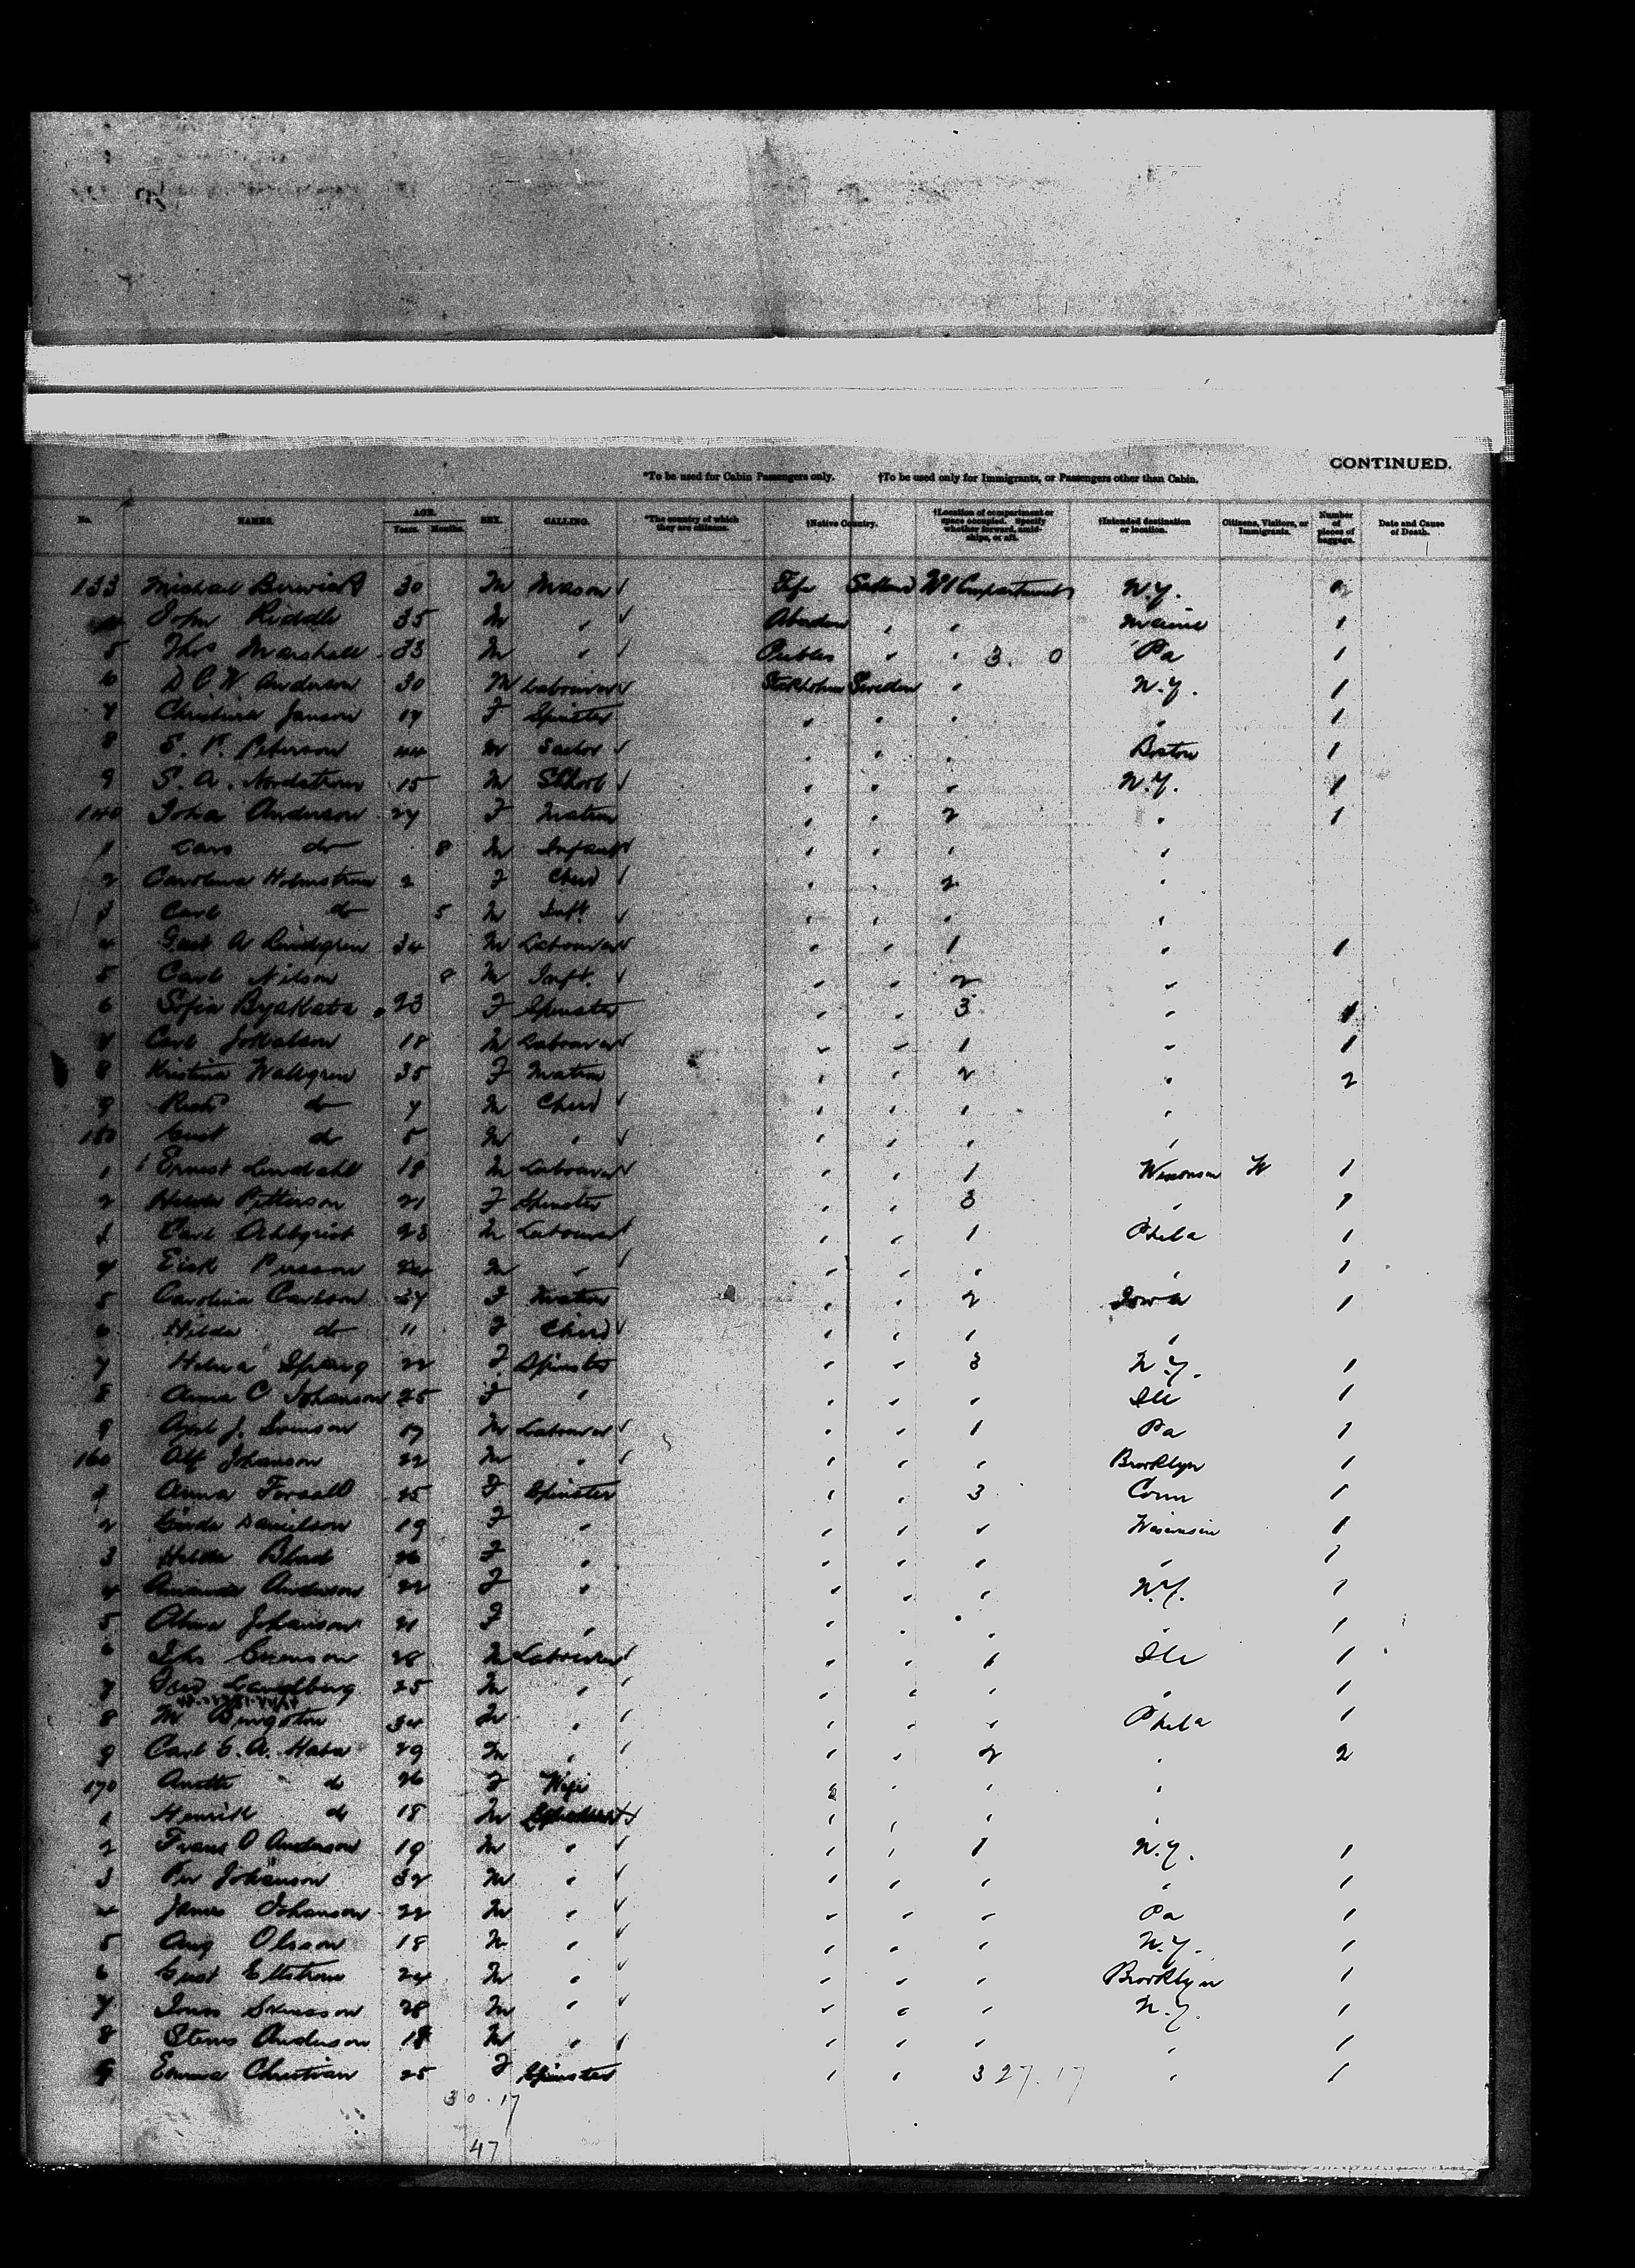 CONTINUED.
*To be used for Cabin Passengers only. †To be used only for Immigrants, or Passengers other than Cabin.
No. NAMES. AGE. Years. Months. SEX. CALLING. *The country of which they are citizens. †Native Country. †Location of compartment or space occupied. Specify whether forward, amidships, or aft. †Intended destination or location. Citizens, Visitors, or Immigrants. Number of pieces of baggage. Date and Cause of Death.
133 Michael 30 M Mason Fife N.Y.
John Riddle 35 M " Aberdeen " " Maine 1
5 Thos Marshall 33 M " Peebles " " 3. 0 Pa 1
6 D C W Anderson 30 M Labourer Stockholm Sweden " N.Y. 1
7 Christina Janson 17 F Spinster " " " " 1
8 S. Peterson 44 M " " " Boston 1
9 S. A. Nordstrom 15 M " " " N.Y. 1
140 Anderson 27 F Matron " " 2 " 1
1 do 8 M Infant " " " "
2 Carolina Holmstrom 2 F Child " " 2 "
3 Carl do 5 M Inft " " " "
4 Gust A Lundgren 34 M Labourer " " 1 " 1
5 Carl Nilson 8 M Inft. " " 2 "
6 Sofia 23 F Spinster " " 3 " 1
7 Carl 18 M Labourer " " 1 " 1
8 Kristina Wallgren 35 F Matron " " 2 " 2
9 do 7 M Child " " " "
150 Gust do 5 M " " " " "
1 Ernest Lindahl 18 M Labourer " " 1 Wisconsin W 1
2 Hilda Petterson 21 F Spinster " " 3 " 1
3 Carl Ahlqvist 23 M Labourer " " 1 Phila 1
4 Erik Persson 24 M " " " " " 1
5 Carolina Carlson 37 F Matron " " 2 Iowa 1
6 Hilda do 11 F Child " " " "
7 22 F Spinster " " 3 N.Y. 1
8 Anna C Johanson 25 F " " " " Ill 1
9 Axel J. Svenson 17 M Labourer " " 1 Pa 1
160 Alf Johanson 22 M " " " " Brooklyn 1
1 Anna Forsell 25 F Spinster " " 3 Conn 1
2 Danielson 19 F " " " " Wisconsin 1
3 Hilda 26 F " " " " " 1
4 Amanda Anderson 22 F " " " " N.Y. 1
5 Alma Johanson 21 F " " " " " 1
6 28 M Labourer " " 1 Ill 1
7 25 M " " " " " 1
8 M 34 M " " " " Phila 1
9 Carl E. A. 29 M " " " 2 " 2
170 do 26 F Wife " " " "
1 Henrik do 18 M " " " "
2 Frans O Anderson 19 M " " " 1 N.Y. 1
3 Per Johanson 32 M " " " " " 1
4 James Johanson 22 M " " " " Pa 1
5 Aug Olsson 18 M " " " " N.Y. 1
6 Gust 24 M " " " " Brooklyn 1
7 28 M " " " " N.Y. 1
8 Anderson 18 M " " " " " 1
9 Emma Christian 25 F Spinster " " 3 27.17 " 1
30.17
47